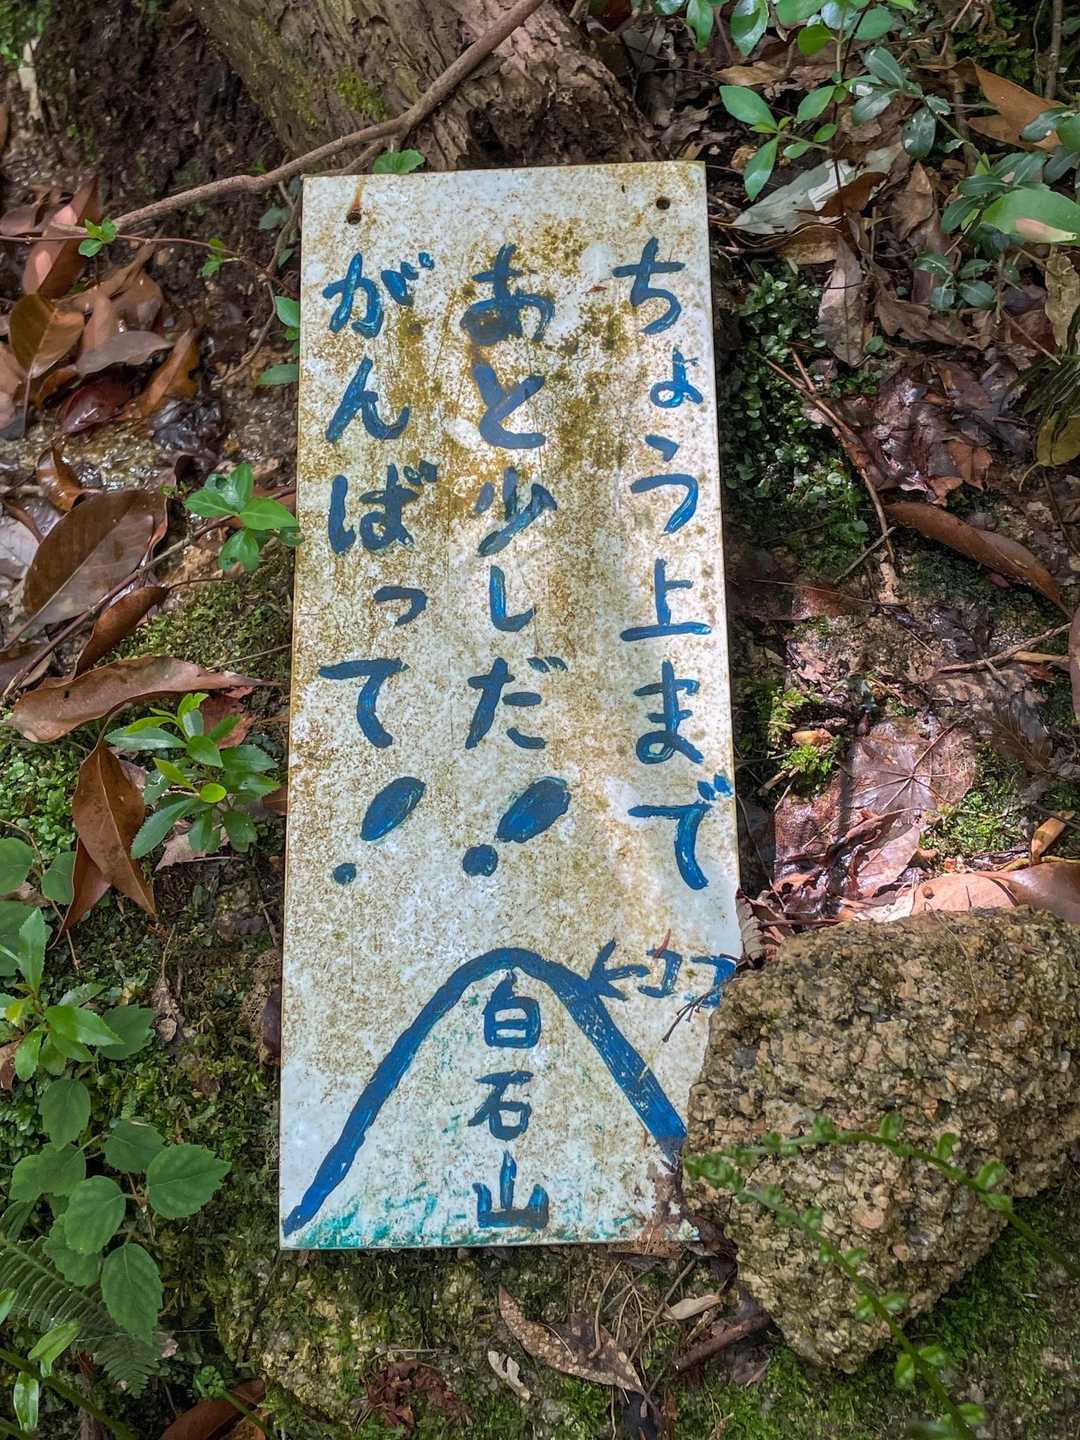 ちょう上まで
あと少しだ！
がんばって！
ココ
白石山